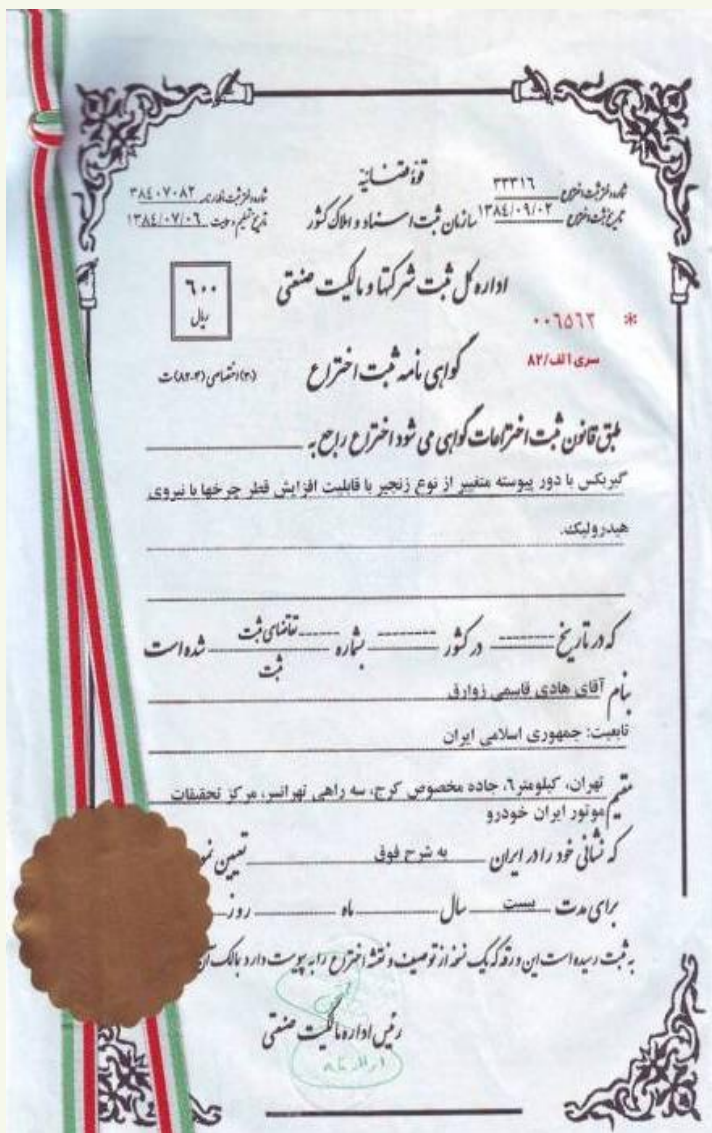 قوه قضائیه
شماره دفتر ثبت اختراع ۳۳۳۱٦
تاریخ ثبت اختراع ۱۳۸٤/۰۹/۰۲
سازمان ثبت اسناد و املاک کشور
۳۸٤۰۷۰۸۲
۱۳۸٤/۰۷/۰٦
اداره کل ثبت شرکتها و مالکیت صنعتی
٦۰۰
ریال
* ۰۰٦٥٦۲
سری الف/۸۲
گواهی نامه ثبت اختراع
طبق قانون ثبت اختراعات گواهی می شود اختراع راجع به
گیربکس با دور پیوسته متغییر از نوع زنجیر با قابلیت افزایش قطر چرخها با نیروی
هیدرولیک.
که در تاریخ -------- در کشور -------- بشماره ------ تقاضای ثبت
ثبت شده است
بنام آقای هادی قاسمی زوارق
تابعیت: جمهوری اسلامی ایران
مقیم تهران، کیلومتر ٦، جاده مخصوص کرج، سه راهی تهرانسر، مرکز تحقیقات
موتور ایران خودرو
که نشانی خود را در ایران به شرح فوق تعیین
برای مدت بیست سال ماه روز
به ثبت رسیده است این ورقه که یک نسخه از توصیف و نقشه اختراع را به پیوست دارد بالک آن
رئیس اداره مالکیت صنعتی